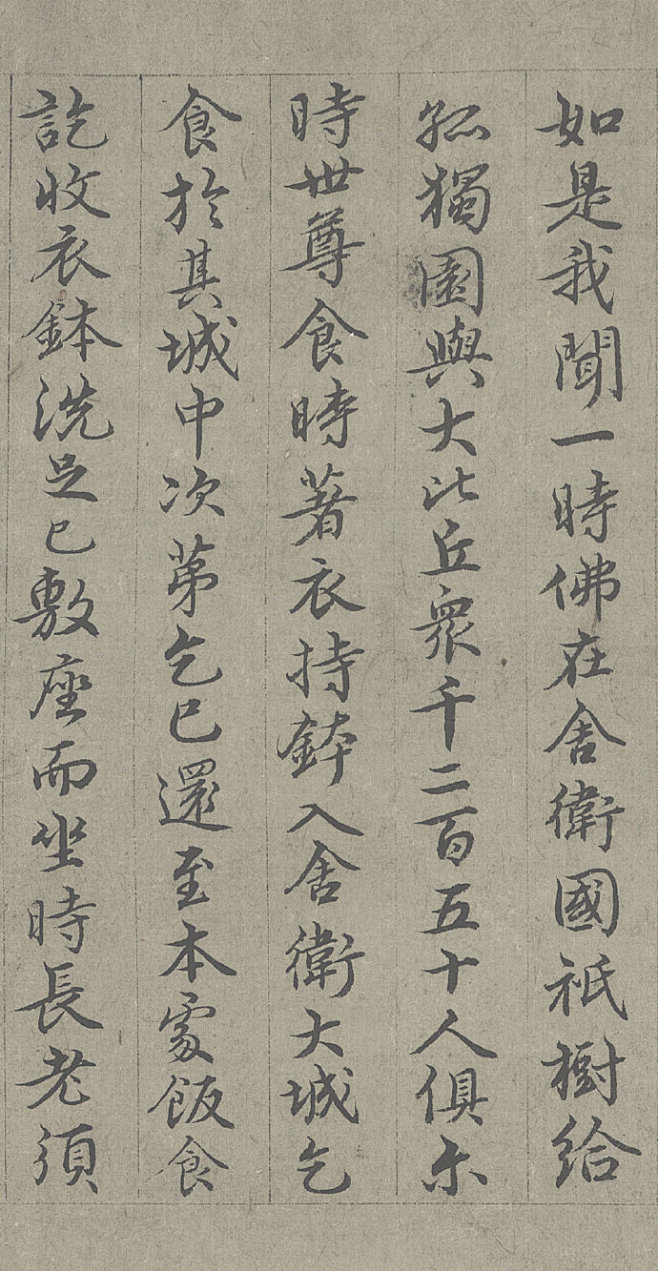 如是我聞一時佛在舍衛國祇樹給
孤獨園與大比丘衆千二百五十人俱尒
時世尊食時著衣持鉢入舍衛大城乞
食於其城中次第乞已還至本處飯食
訖收衣鉢洗足已敷座而坐時長老須